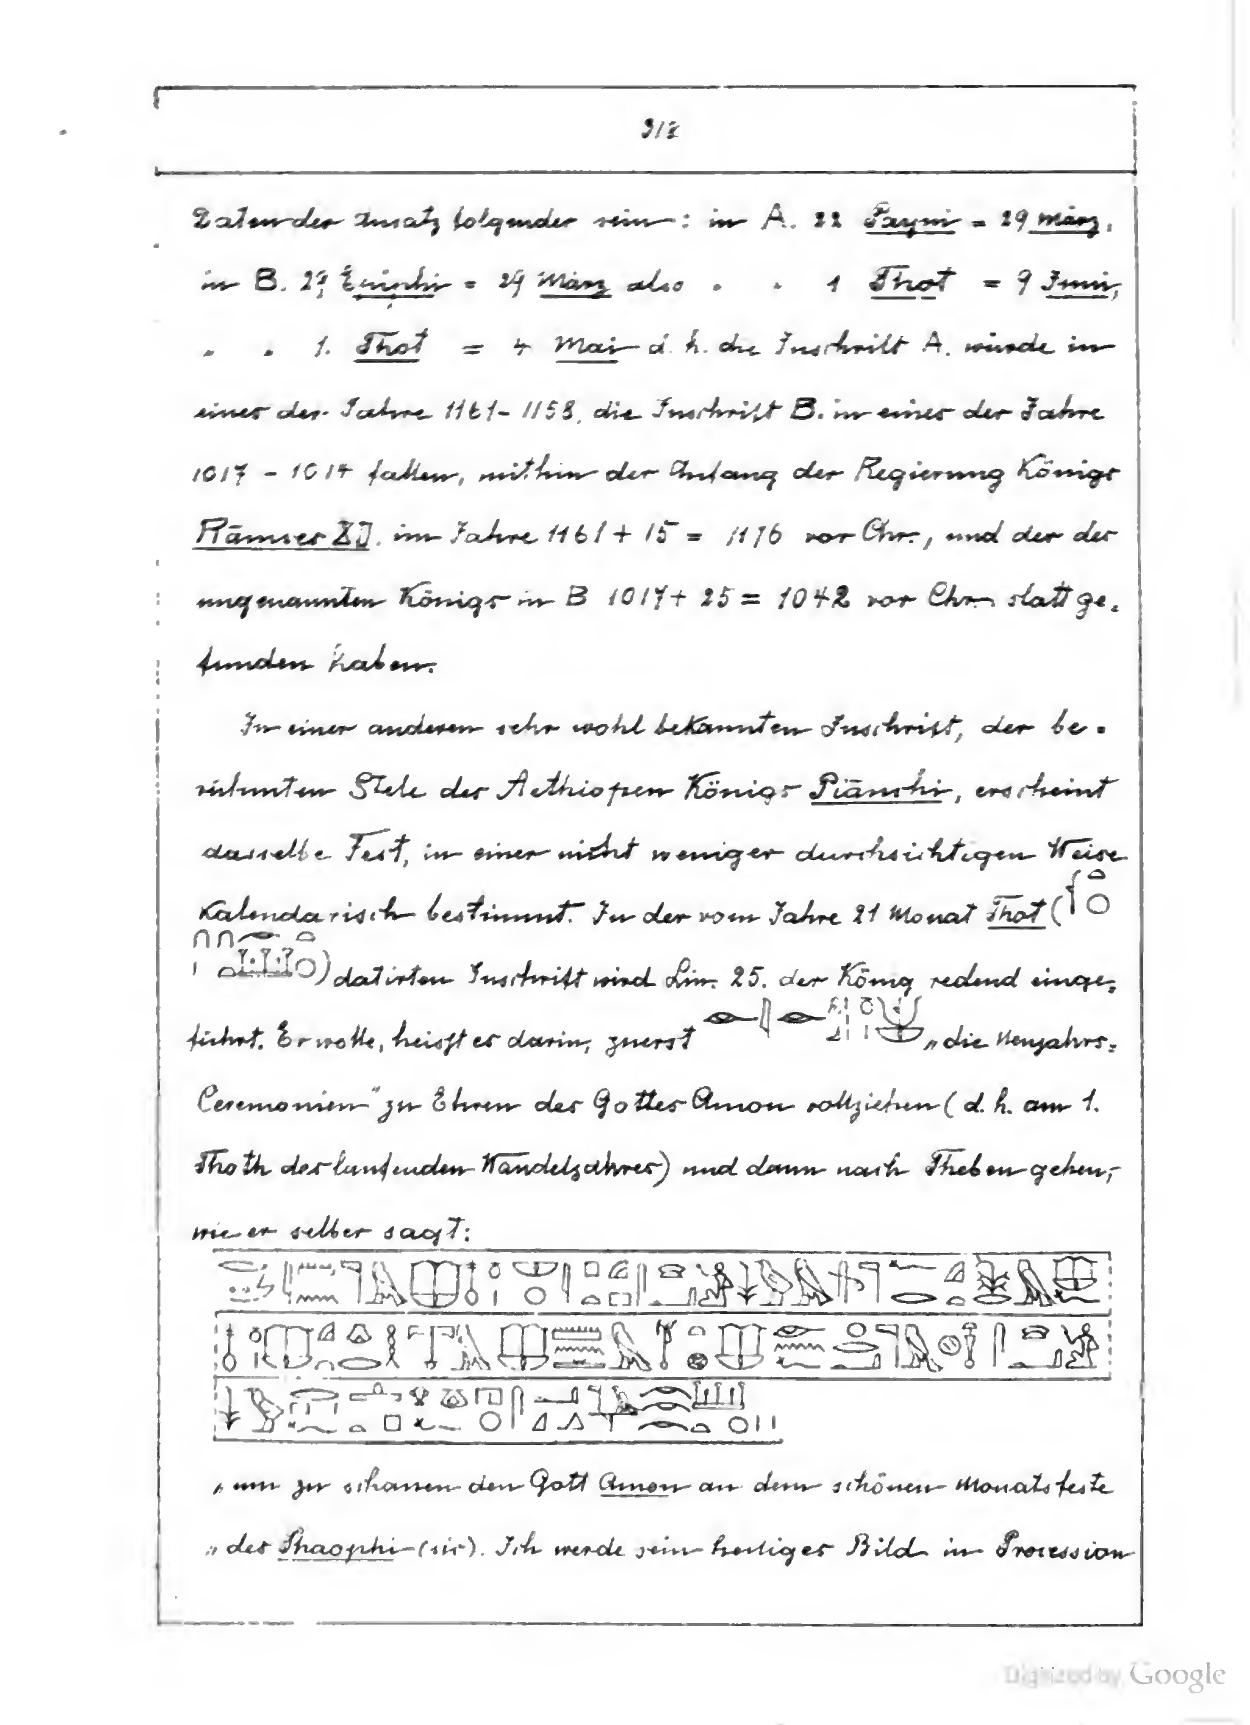 Daten der Ansatz folgender sein: in A. 22 Payni = 29 März,
in B. 27 Epiphi = 29 März also " " 1 Thot = 9 Juni,
" " 1. Thot = 4 Mai d. h. die Inschrift A. würde in
eines der Jahre 1161-1158, die Inschrift B. in eines der Jahre
1017 - 1014 fallen, mithin der Anfang der Regierung Königs
Rāmses XI. im Jahre 1161 + 15 = 1176 vor Chr., und der des
ungenannten Königs in B 1017 + 25 = 1042 vor Chr. stattge-
funden haben.
In einer anderen sehr wohl bekannten Inschrift, der be-
rühmten Stele des Aethiopen Königs Piānchi, erscheint
dasselbe Fest, in einer nicht weniger durchsichtigen Weise
Kalendarisch bestimmt. In der vom Jahre 21 Monat Thot (
) datirten Inschrift wird Lin. 25. der König redend einge-
führt. Er wolle, heisst es darin, zuerst „die Neujahrs-
Ceremonien" zu Ehren des Gottes Amon vollziehen (d. h. am 1.
Thoth des laufenden Wandeljahres) und dann nach Theben gehen,
wie er selber sagt:
„um zu schauen den Gott Amon an dem schönen Monatsfeste
„des Phaophi (sic). Ich werde sein heiliges Bild in Procession
Digitized by Google